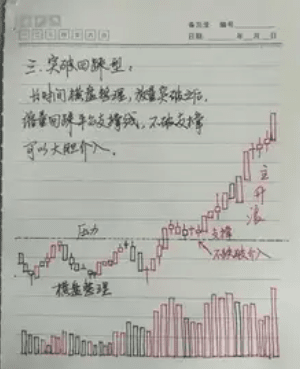 备忘录 编号
日期: 年 月 日
三.突破回踩型:
长时间横盘整理,放量突破之后
缩量回踩平台支撑线,不破支撑
可以大胆介入。
主升浪
压力
支撑
不跌破介入
横盘整理